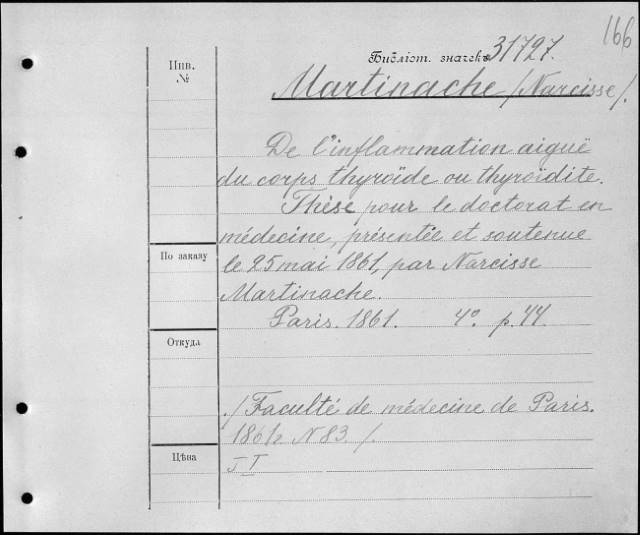 166
Библіот. значекъ 31727.
Инв.
№
Martinache /Narcisse/.
De l'inflammation aiguë
du corps thyroïde ou thyroïdite.
Thèse pour le doctorat en
médecine, présentée et soutenue
По заказу
le 25 mai 1861, par Narcisse
Martinache.
Paris. 1861. 4º. p. 44.
Откуда
/Faculté de médecine de Paris.
1861, N 83. /.
Цѣна